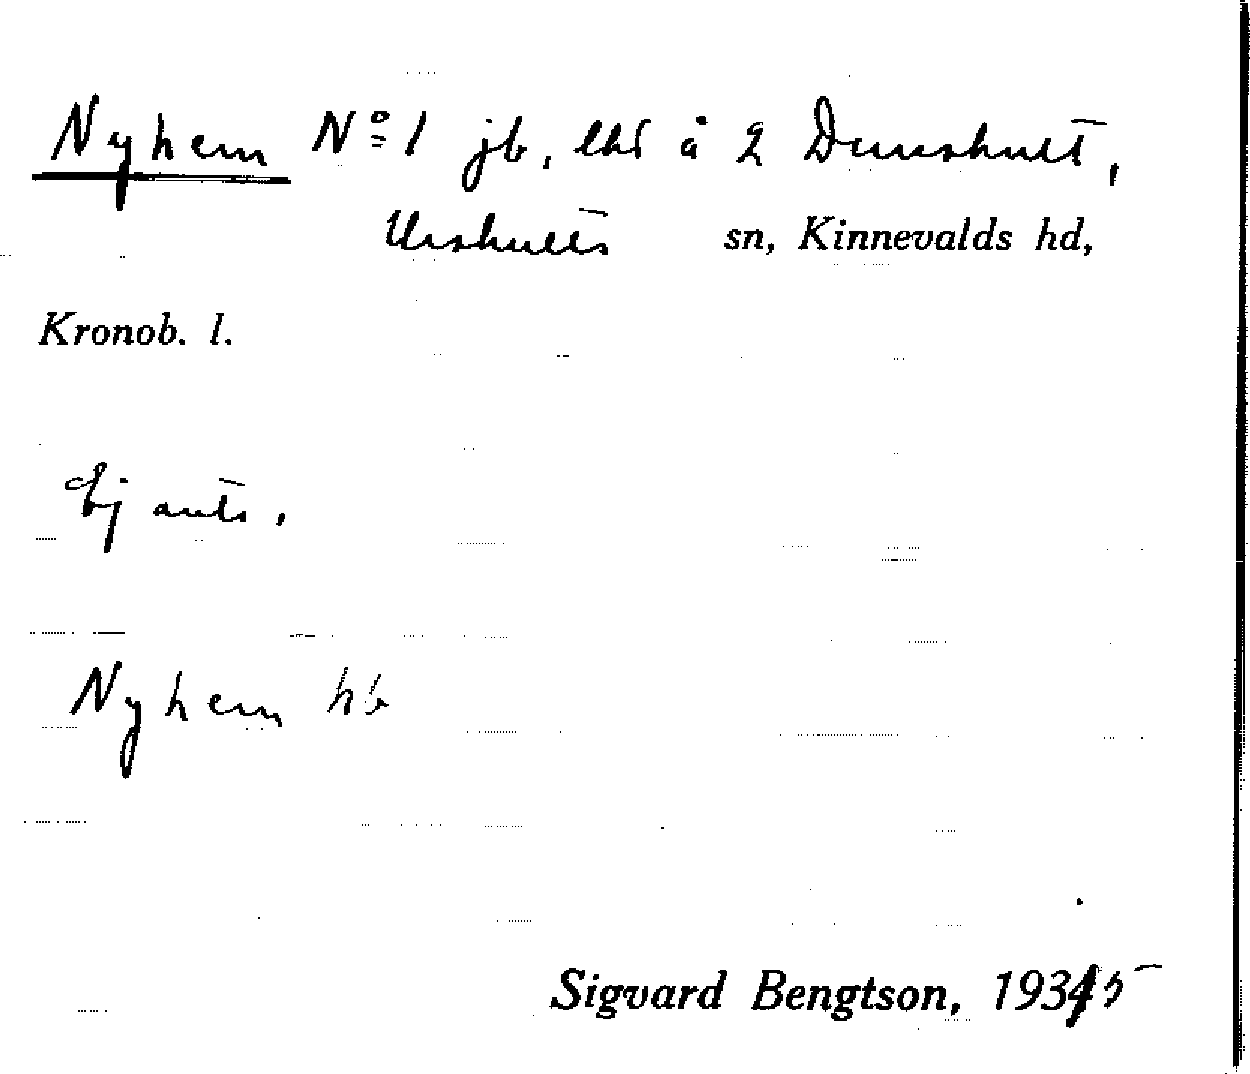 Nyhem Nº 1 jb, lht å 2 Dunshult,
Urshults sn, Kinnevalds hd,
Kronob. l.
Ej antr.
Nyhem hb
Sigvard Bengtson, 1935